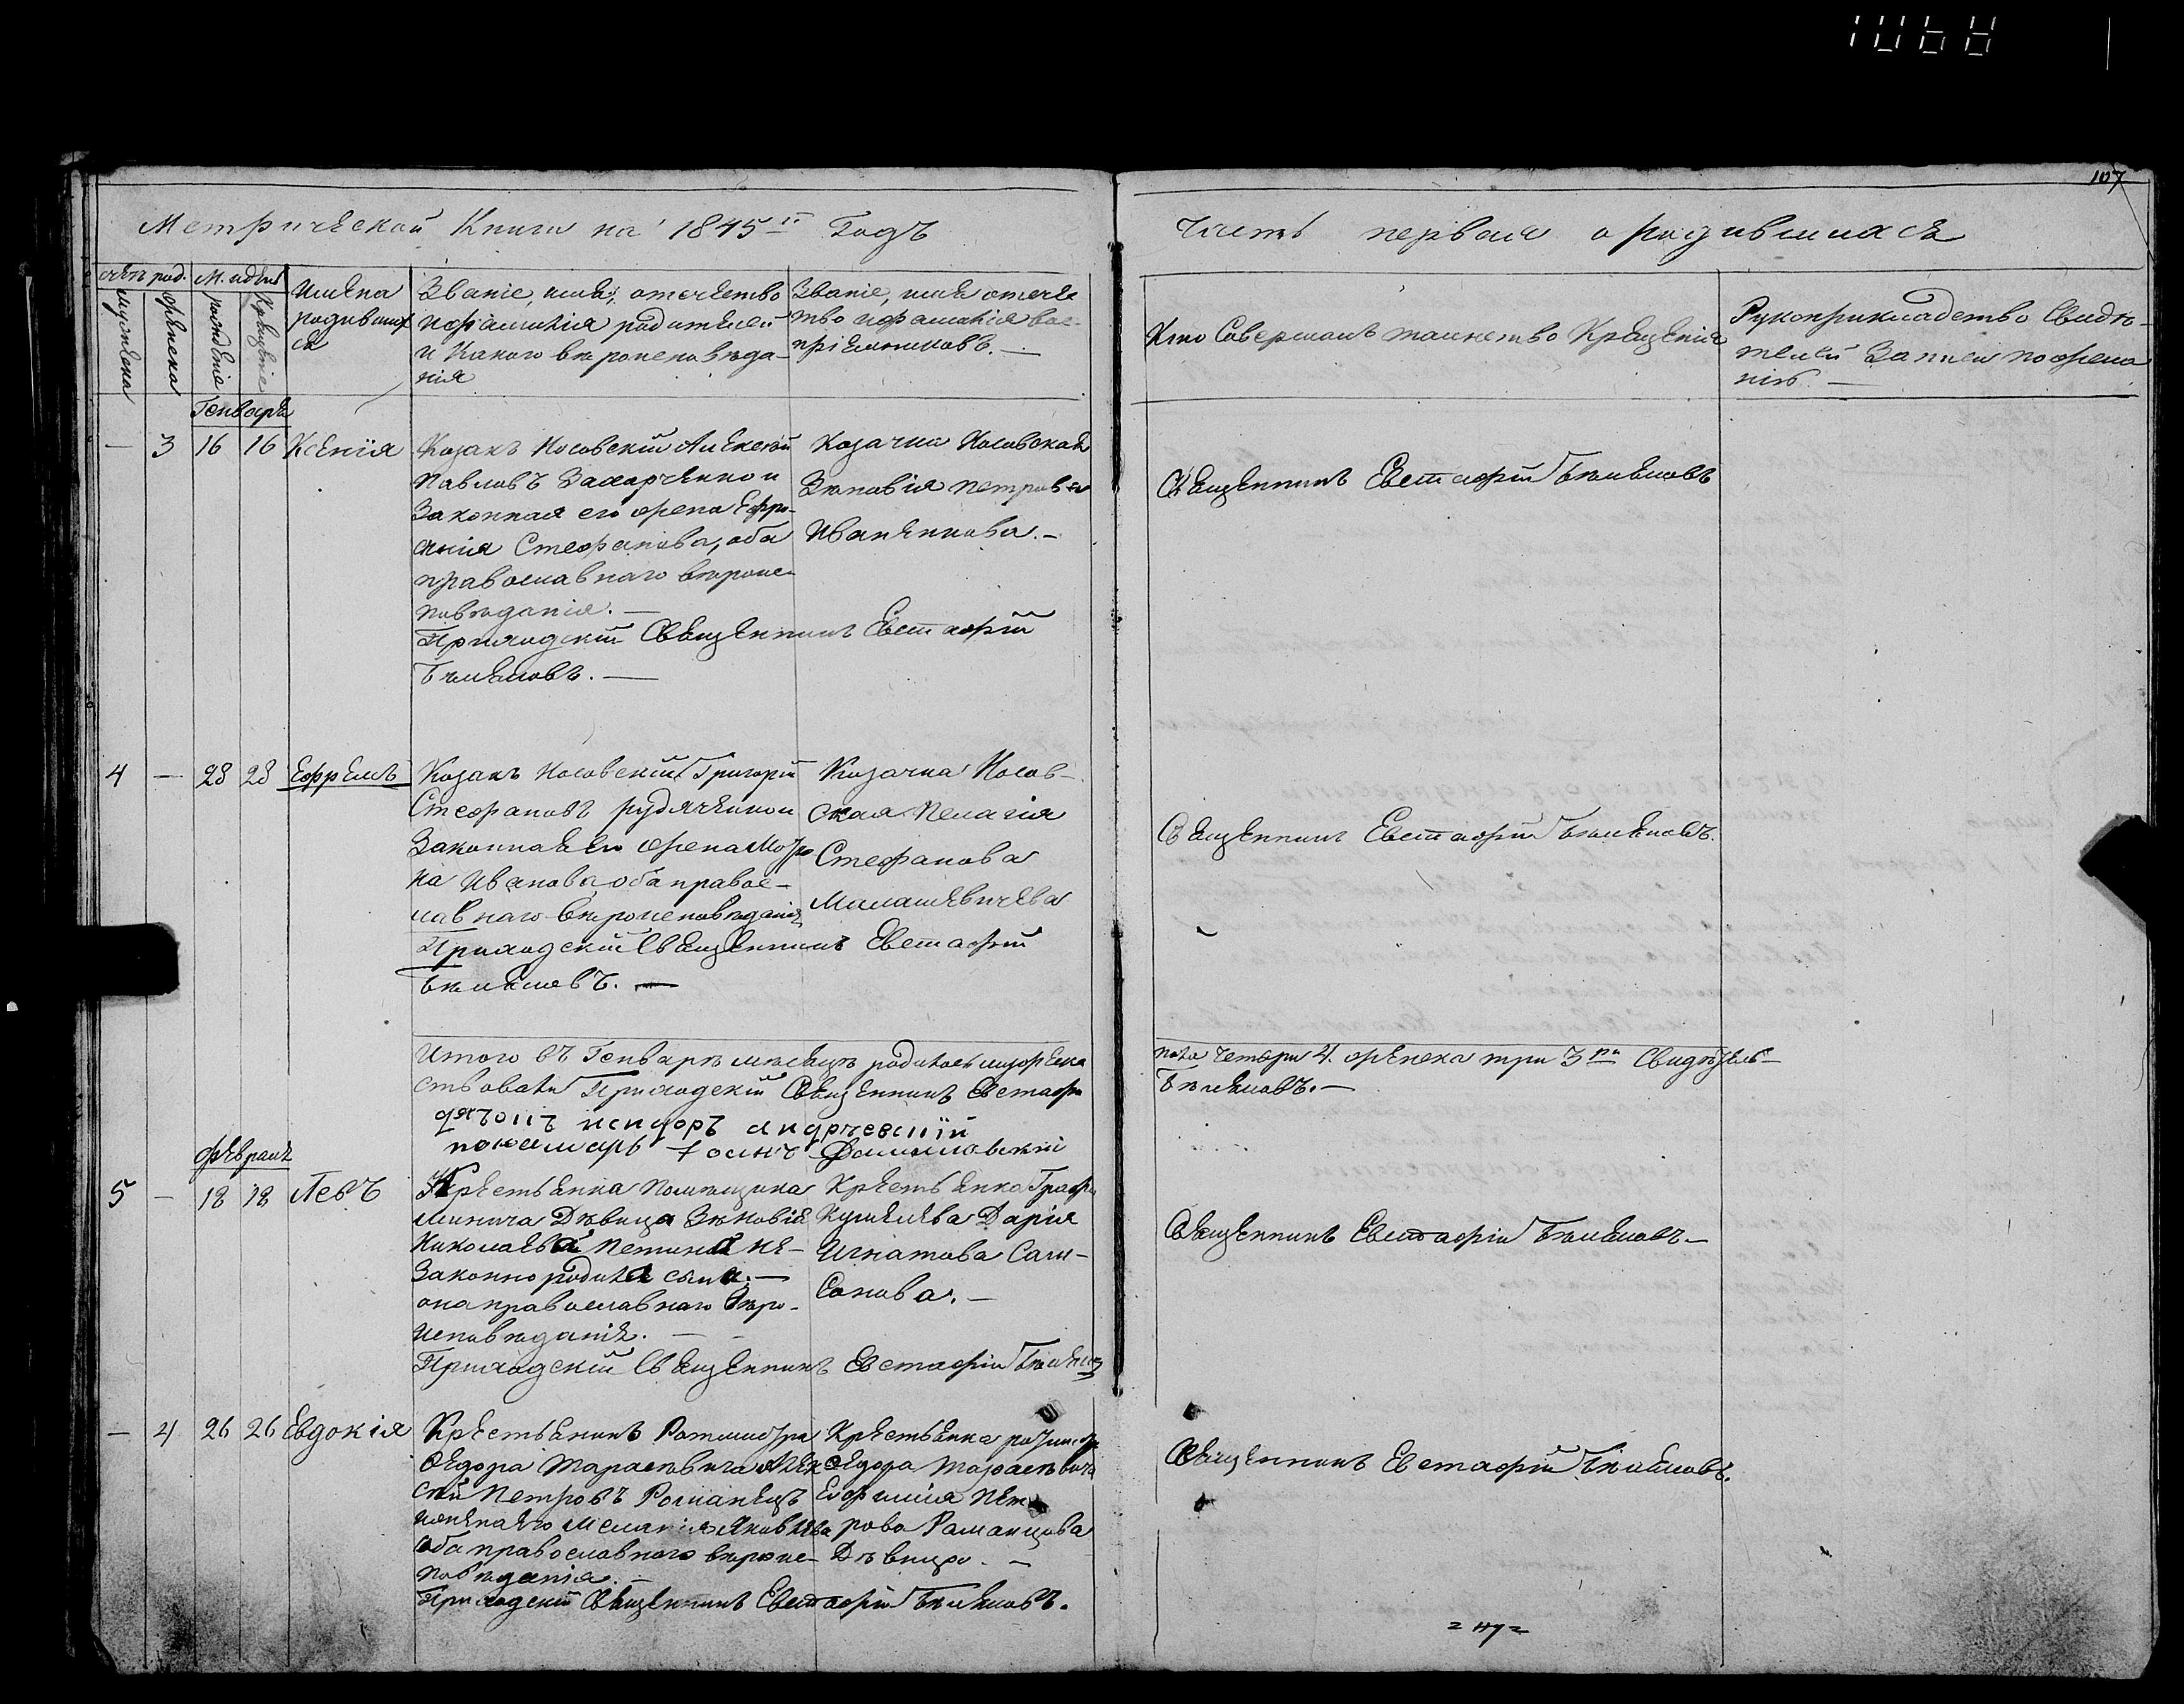 107
Метрической Книги на 1845й Годъ
Часть первая о родившихся
счетъ род.
М. и дни
мужеска
женска
рожденіе
крещеніе
Имена
родивших
ся
Званіе, имя, отечество
и фамилія родителей
и Какого вѣроисповѣда-
нія
Званіе, имя отече
тво и фамилія вос-
пріемниковъ. —
Кто Совершалъ таинство Крещенія
Рукоприкладство Свидѣ-
телей Записи по жела
нію. —
Генваря
— 3 16 16 Ксенія
Козакъ Носовскій Алексѣй
Павловъ Захарченко и
Законная его жена Ефро-
синія Стефанова, оба
православнаго вѣроис-
повѣданія. —
Приходскій Священникъ Евстафій
Бѣляловъ. —
Козачка Носовская
Зѣновія Петрова
Иваненкова. —
Священникъ Евстафій Бѣляловъ
4 — 28 28 Ефремъ
Козакъ Носовскій Григорій
Стефановъ рудяченко и
Законная его жена Мотро
на Иванова оба правос-
лавнаго вѣроисповѣданія
Приходскій Священникъ Евстафій
Бѣляловъ. —
Козачка Носов-
ская Пелагія
Стефанова
Малашевичева
Священникъ Евстафій Бѣляловъ.
Итого въ Генварѣ мѣсяцѣ родилось мужеска
пола четыри 4. женска три 3ри Свидѣтель-
ствовали Приходскій Священникъ Евстафій
Бѣляловъ. —
дячокъ исидоръ андріевскій
понамарь Іоанъ Даниловскій
февраля
5 — 18 18 Левъ
Крестьянка Помѣщика
Минича Дѣвица Зѣновія
Николаева Петина не-
Законно родила сына. —
она православнаго вѣро-
исповѣданія. —
Приходскій Священникъ Евстафій Бѣляловъ
Крестьянка Графа
Кушелева Дарія
Игнатова Сам-
сонова. —
Священникъ Евстафій Бѣляловъ —
— 4 26 26 Евдокія
Крестьянинъ Ротмистра
Ѳедора Тарасевича Алек
сѣй Петровъ Романецъ
и жена его Меланія Яковлева
оба православнаго вѣроис-
повѣданія. —
Приходскій Священникъ Евстафій Бѣляловъ.
Крестьянка ротмистра
Ѳедора Тарасевича
Евфимія Пет
рова Романцова
Дѣвица. —
Священникъ Евстафій Бѣляловъ.